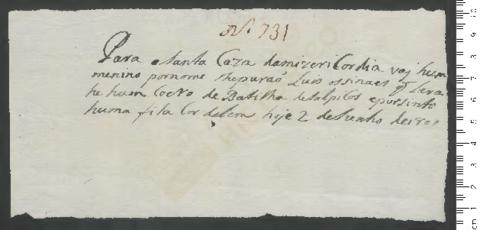 Nº 731
Para a Santa Caza da mizeri Cordia vaj hum
menino por nome Luis os sinaes q Leva
he hum Coeiro de Baetilha de salpicos e por sinto
huma fita Cor de hoje 2 de Junho de